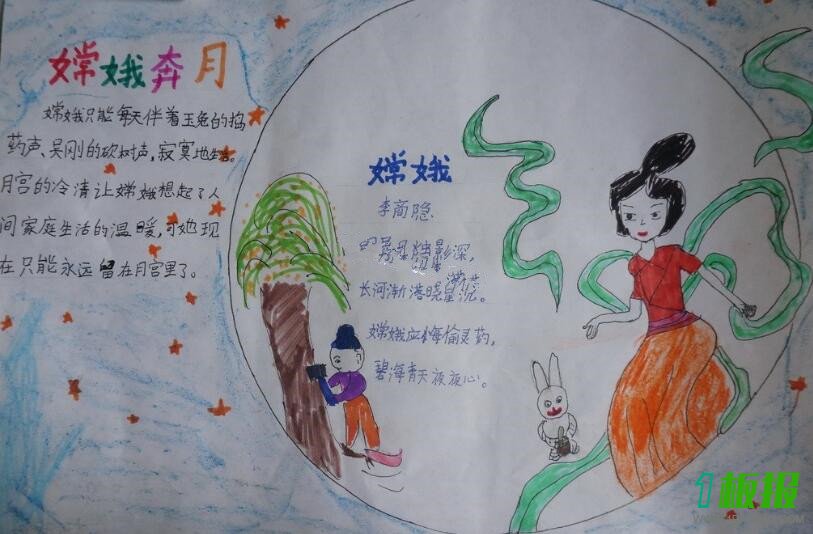 嫦娥奔月
嫦娥只能每天伴着玉兔的捣
药声、吴刚的砍树声,寂寞地生活。
月宫的冷清让嫦娥想起了人
间家庭生活的温暖,可她现
在只能永远留在月宫里了。
嫦娥
李商隐
影深,
长河渐落晓星沉。
嫦娥应悔偷灵药,
碧海青天夜夜心。
1板报